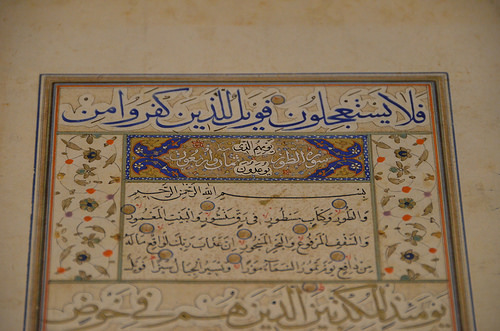 فلا يستعجلون فويل للذين كفروا من
يومهم الذي
سورة الطور ثمان واربعون
يوعدون
بسم الله الرحمن الرحيم
والطور وكتاب مسطور في رق منشور والبيت المعمور
والسقف المرفوع والبحر المسجور ان عذاب ربك لواقع ما له
من دافع يوم تمور السماء مورا وتسير الجبال سيرا فويل
يومئذ للمكذبين الذين هم في خوض